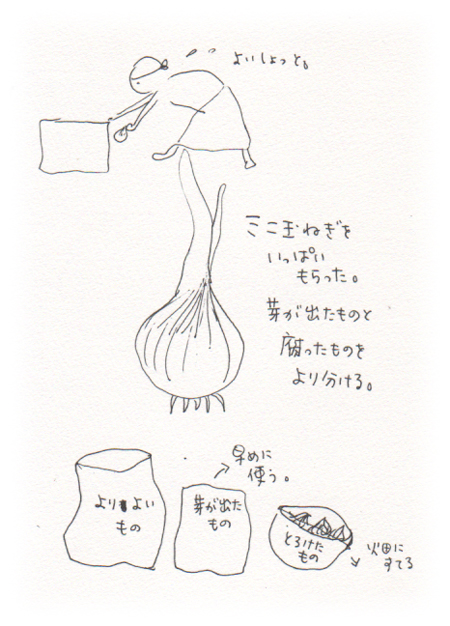 よいしょっと。
ミニ玉ねぎを
いっぱい
もらった。
芽が出たものと
腐ったものを
より分ける。
早めに
使う。
よりよい
もの
芽が出た
もの
とろけた
もの
畑に
すてる